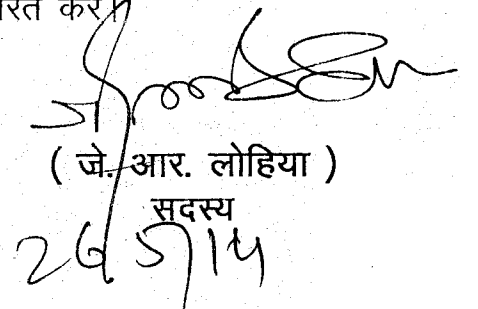 रित करें।
( जे. आर. लोहिया )
सदस्य
26/5/14